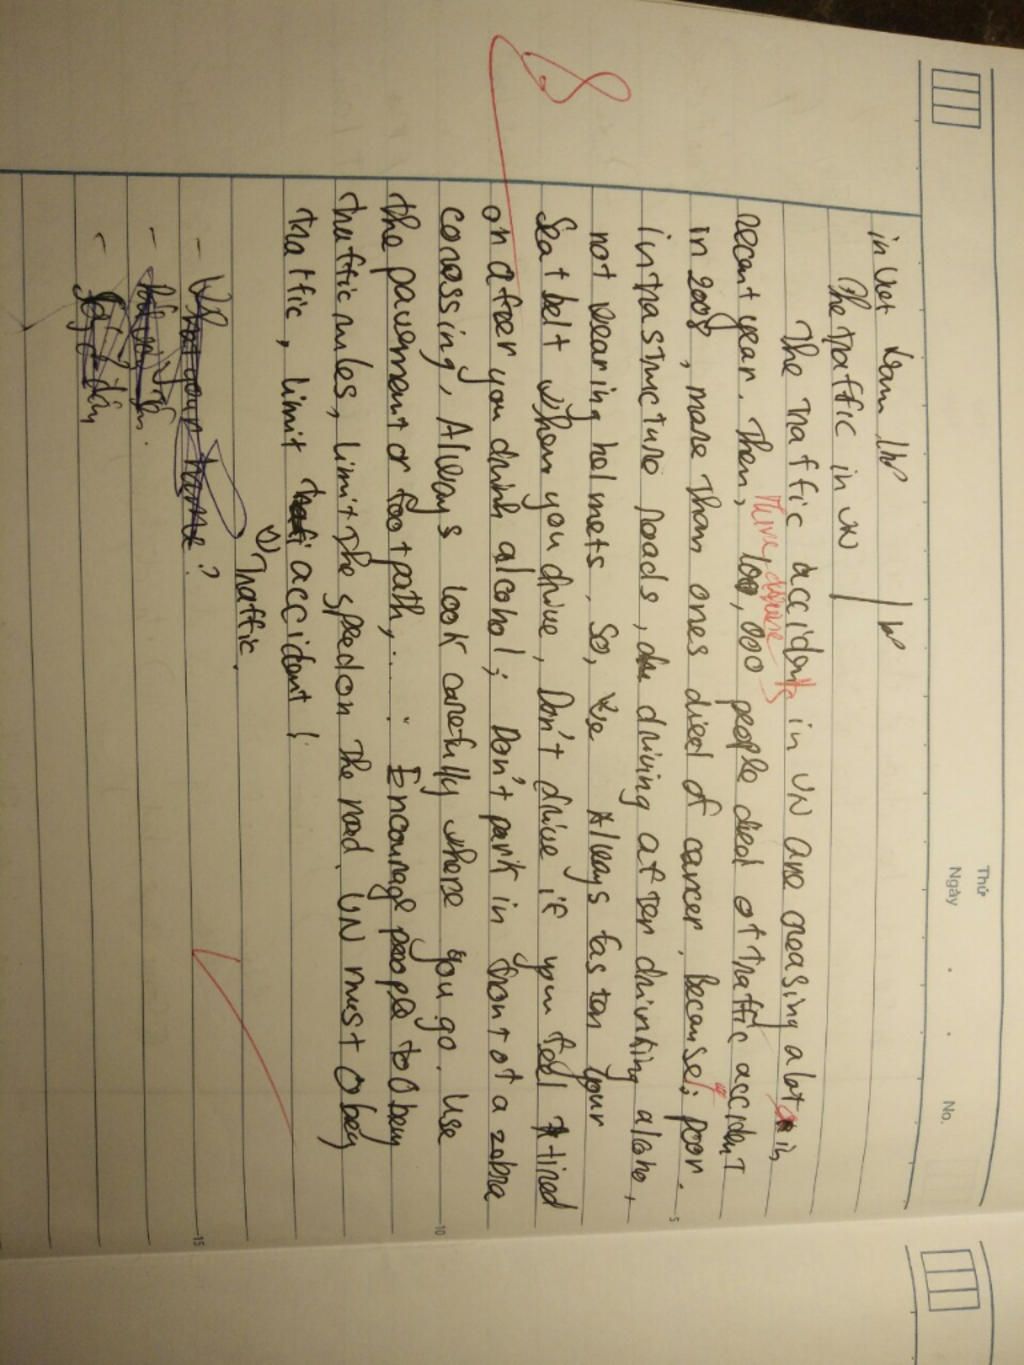 Thứ
Ngày
No.
8
in Viet Nam
The traffic in VN
The traffic accidents in VN are creasing a lot in
recant year. Then, 100,000 people died of traffic accident
in 2008, more than ones died of cancer, because; poor.
intrastructure roads, driving after drinking alcoho,
not wearing helmets, So, we Always fasten your
Seat belt when you drive, Don't drive if you feel tired
on afeer you drink alcohol; Don't park in front of a zebra
conessing, Always look carefully where you go. Use
the pavement or footpath,... Encourage people to Obey
traffic rules, limit the speed on the road. VN must Obey
5
10
traffic, limit accident!
Traffic.
- What your name?
15